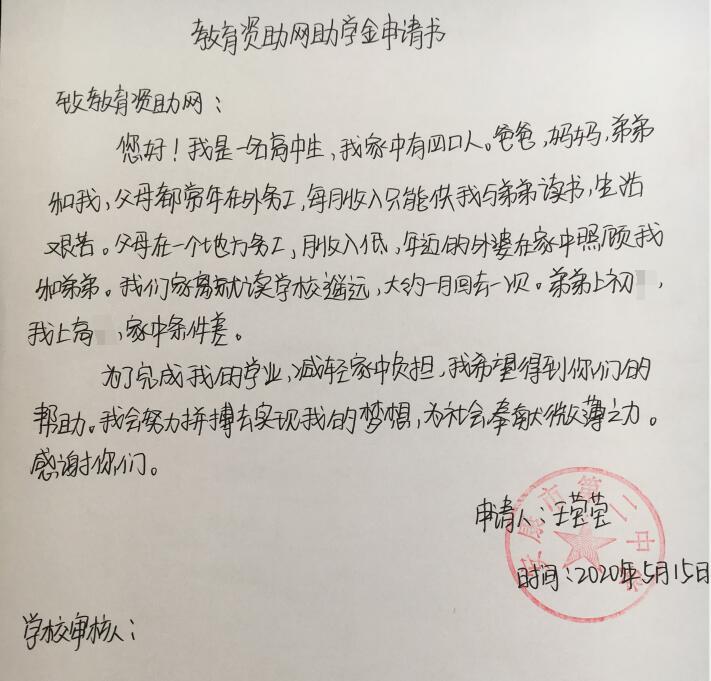 教育资助网助学金申请书
致教育资助网：
您好！我是一名高中生，我家中有四口人。爸爸，妈妈，弟弟
和我，父母都常年在外务工，每月收入只能供我与弟弟读书，生活
艰苦。父母在一个地方务工，月收入低，年迈的外婆在家中照顾我
和弟弟。我们家离就读学校遥远，大约一月回去一次。弟弟上初，
我上高，家中条件差。
为了完成我的学业，减轻家中负担，我希望得到你们的
帮助。我会努力拼搏去实现我的梦想，为社会奉献微薄之力。
感谢你们。
申请人：王莹莹
时间：2020年5月15日
安康市第二中学
学校审核人：